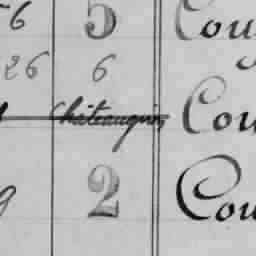 6 5 Cou
26 6
Chateauguay Cou
9 2 Cou